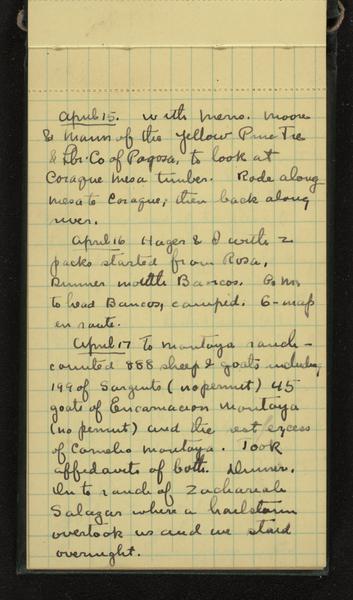 April 15. with Messrs. Moore
& Mann of the Yellow Pine Tie
& Lbr. Co of Pagosa, to look at
Coraque Mesa timber. Rode along
mesa to Coraque, then back along
river.
April 16 Hager & I with 2
packs started from Rosa,
Dinner mouth Bancos. Go
to head Bancos, camped. G-map
en route.
April 17 To Montoya ranch -
counted 888 sheep & goats including
199 of Sargents (no permit) 45
goats of Encarnacion Montoya
(no permit) and the rest excess
of Cornelio Montoya. Took
affidavits of both. Dinner.
On to ranch of Zachariah
Salazar where a hailstorm
overtook us and we staid
overnight.